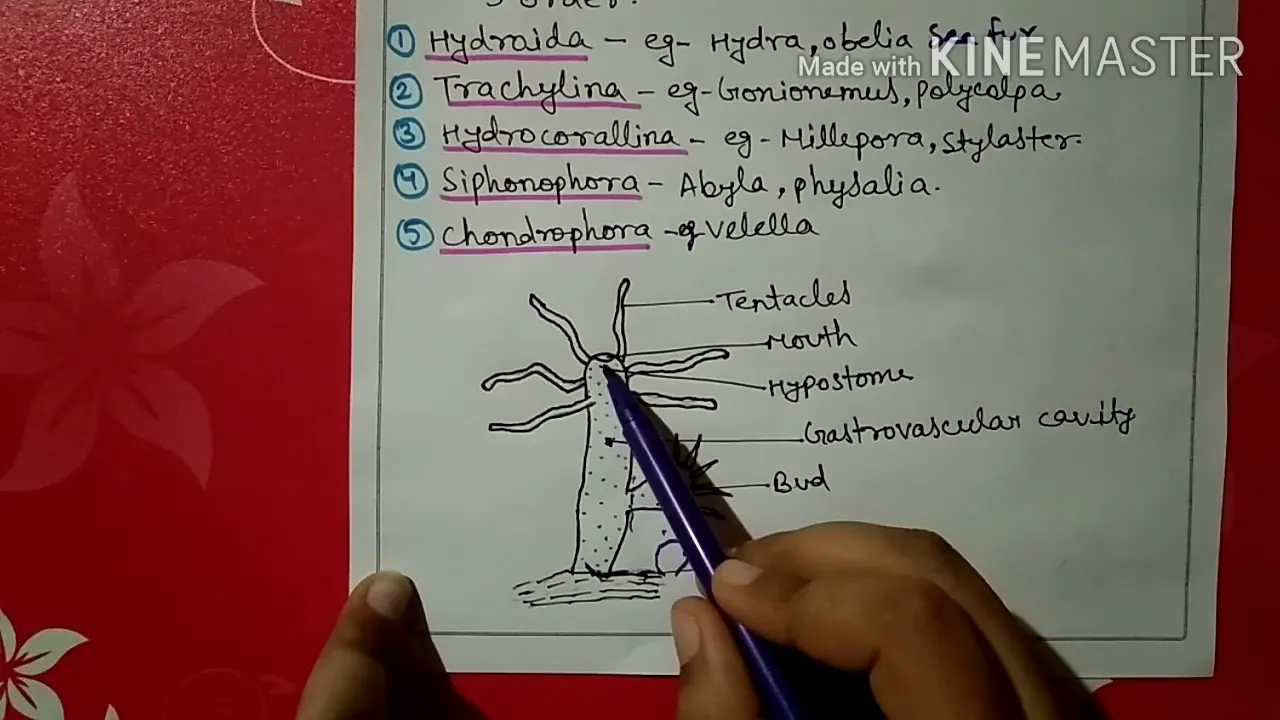 5 order.
① Hydraida - eg- Hydra, obelia Sea fur
Made with KINEMASTER
② Trachylina - eg- Gonionemus, polycolpa
③ Hydrocorallina - eg - Millepora, Stylaster.
④ Siphonophora - Abyla, physalia.
⑤ Chondrophora - eg Velella
Tentacles
Mouth
Hypostome
Gastrovascular cavity
Bud